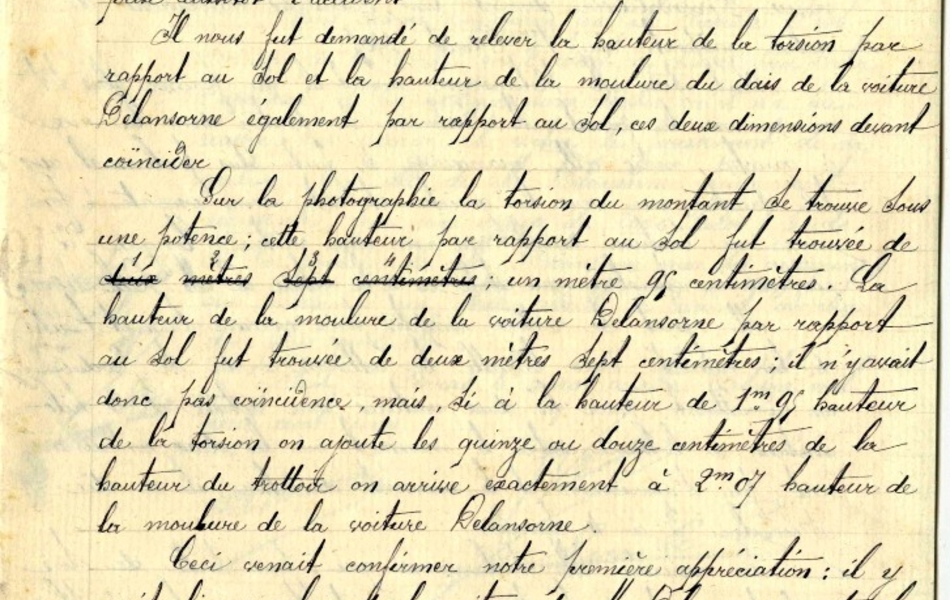 Il nous fut demandé de relever la hauteur de la torsion par
rapport au sol et la hauteur de la moulure du dais de la voiture
Delansorne également par rapport au sol, ces deux dimensions devant
coïncider
Sur la photographie la torsion du montant se trouve sous
une potence ; cette hauteur par rapport au sol fut trouvée de
1 2 3 4
deux mètres sept centimètres ; un mètre 95 centimètres. La
hauteur de la moulure de la voiture Delansorne par rapport
au sol fut trouvée de deux mètres sept centimètres ; il n'y avait
donc pas coïncidence, mais, si à la hauteur de 1m 95 hauteur
de la torsion on ajoute les quinze ou douze centimètres de la
hauteur du trottoir on arrive exactement à 2m 07 hauteur de
la moulure de la voiture Delansorne
Ceci venait confirmer notre première appréciation : il y